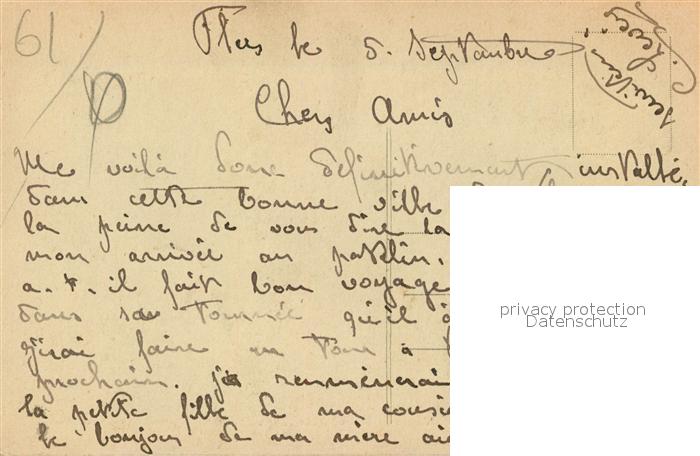 61/
Flers le 5 Septembre
Chers Amis
Me voilà donc définitivement installé,
dans cette bonne ville
la peine de vous dire la
mon arrivée au patelin.
a. t. il fait bon voyage
dans sa tournée qu'il
j'irai faire un tour à
prochain. je ramènerai
la petite fille de ma cousi
le bonjour de ma mère ai
privacy protection
Datenschutz